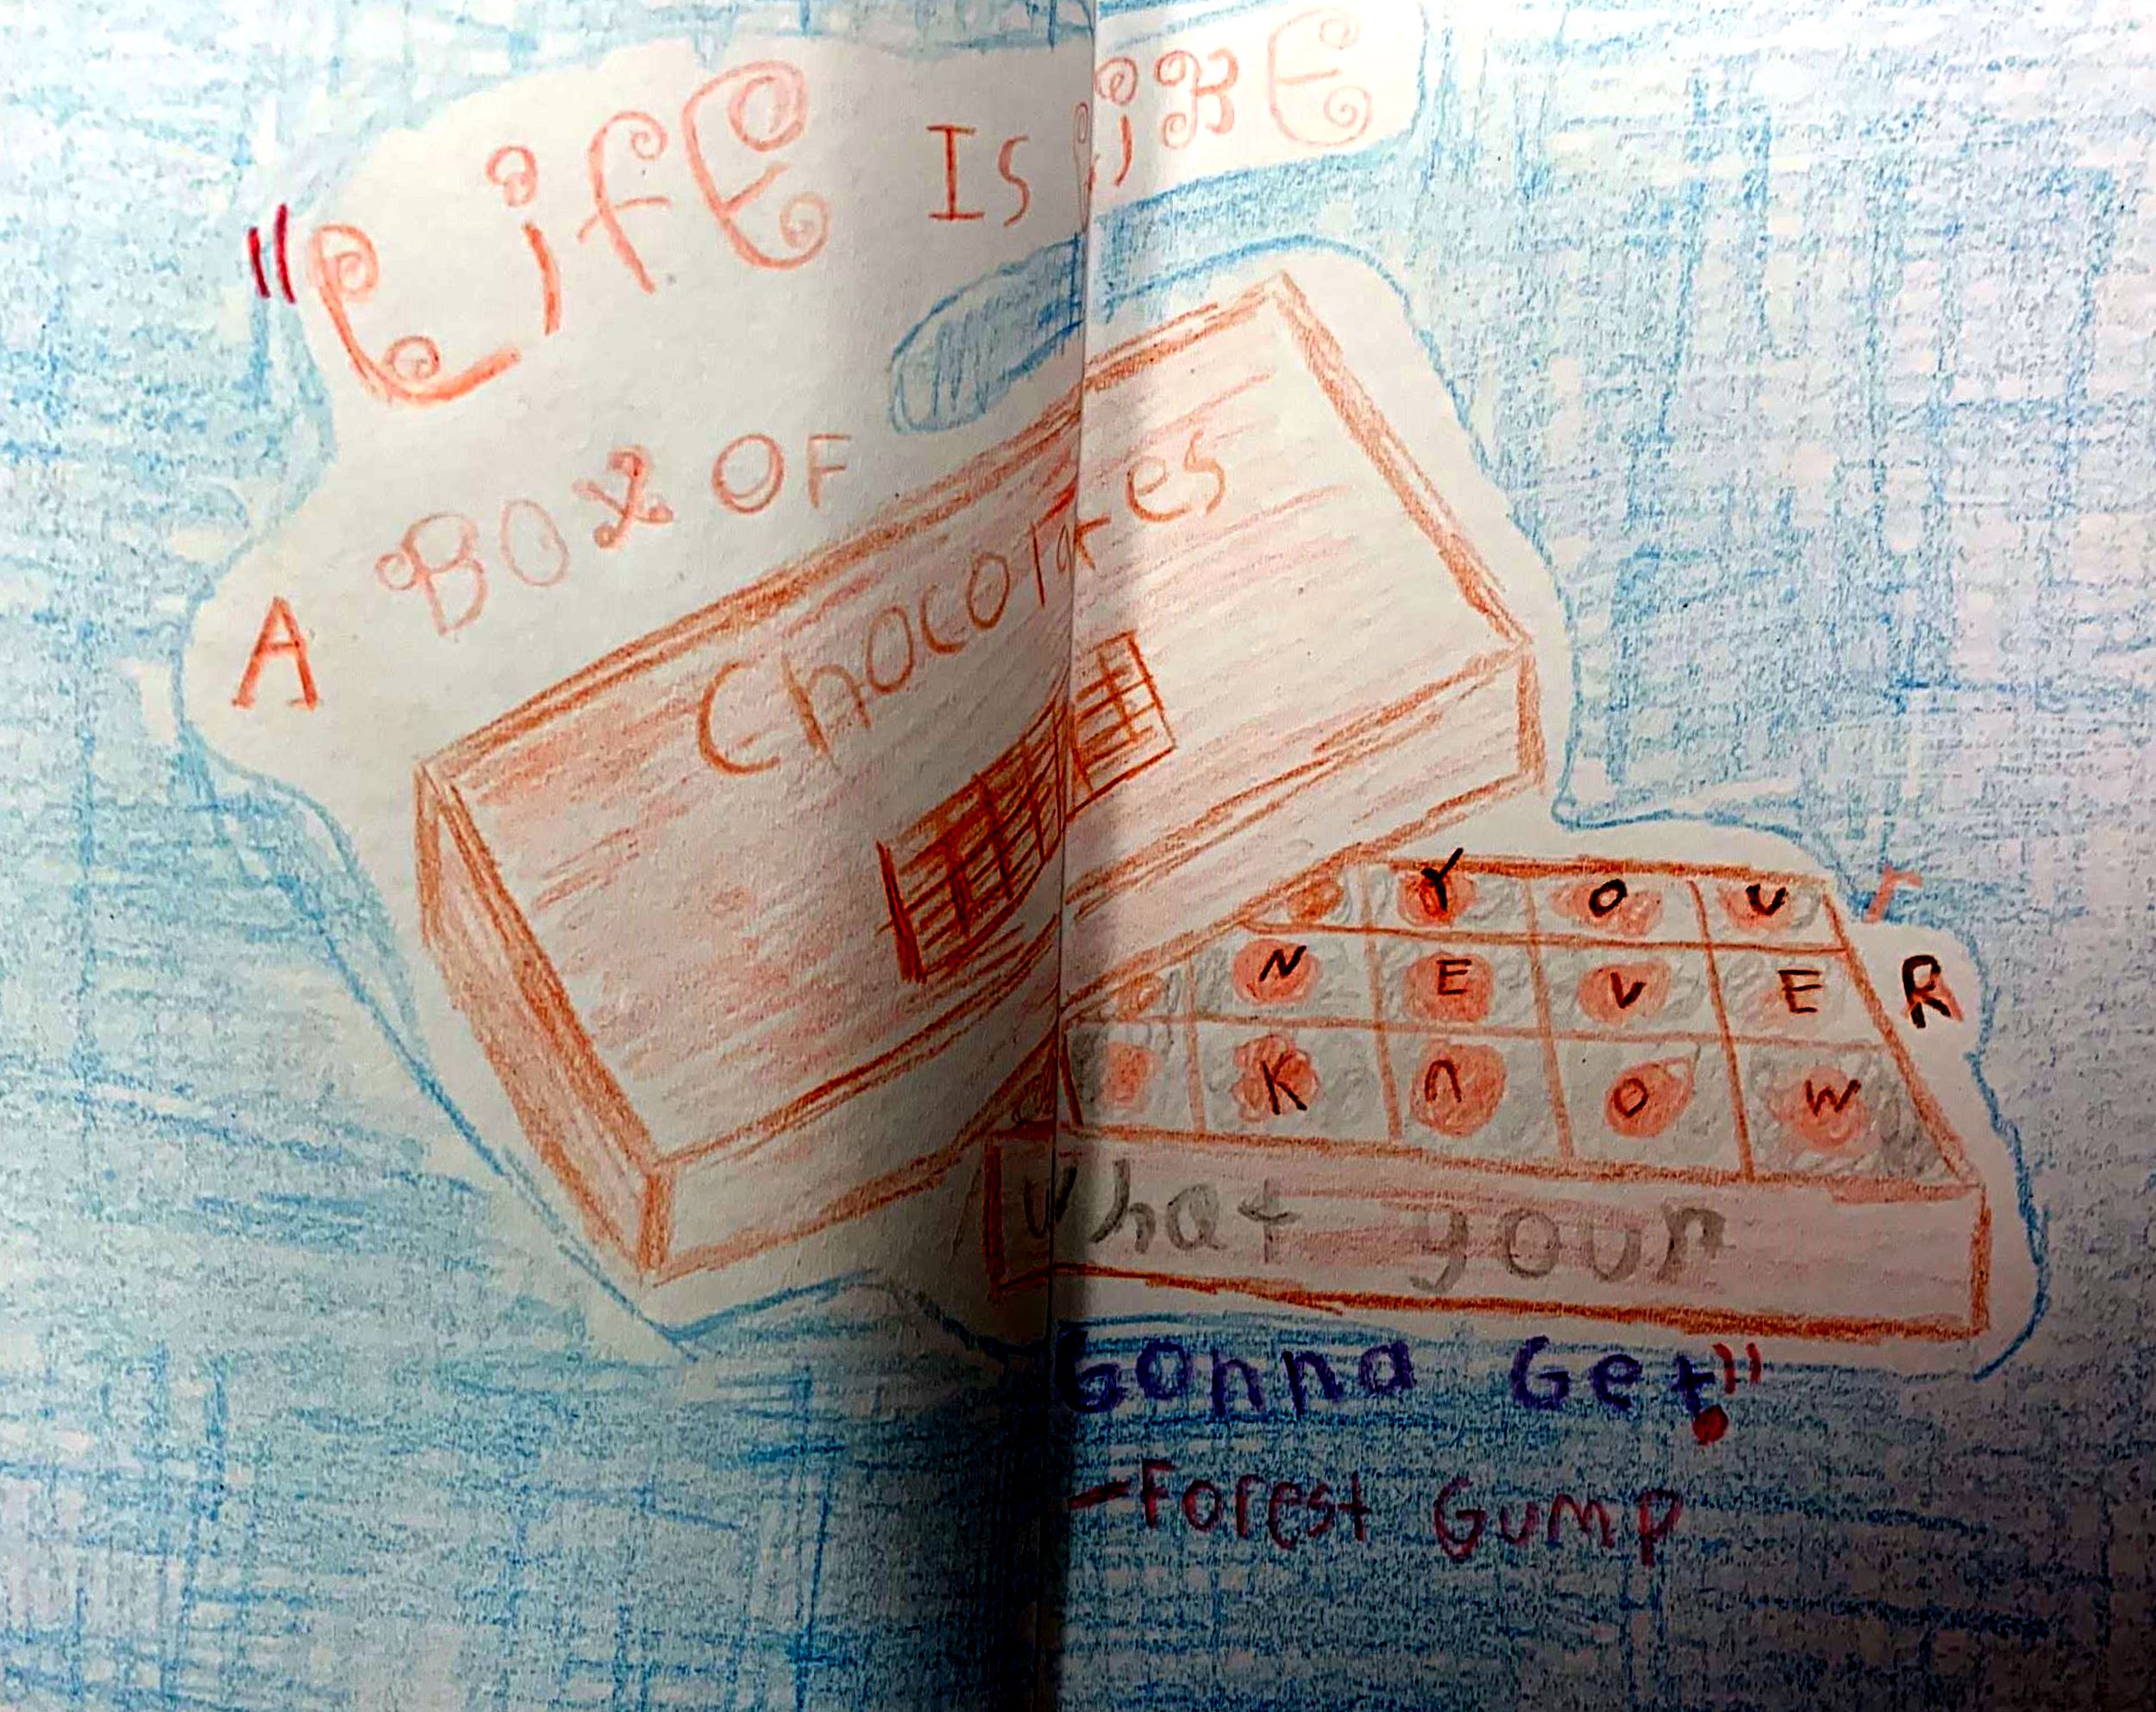 "LifE Is LiKE
A BOX OF
Chocolates
YOU
NEVE R
KnOW
What your
Gonna Get".
-Forest Gump